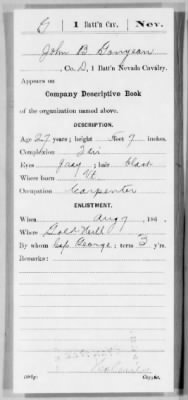 G | 1 Batt'n Cav. | Nev.
John B Gonyean
, Co. D, 1 Batt'n Nevada Cavalry.
Appears on
Company Descriptive Book
of the organization named above.
DESCRIPTION.
Age 27 years; height feet 7 inches.
Complexion
Eyes gray; hair black
Where born Vt.
Occupation Carpenter
ENLISTMENT.
When Aug 7, 186 .
Where Gold Hill
By whom Cap George; term 3 y'rs.
Remarks:
Copyist.